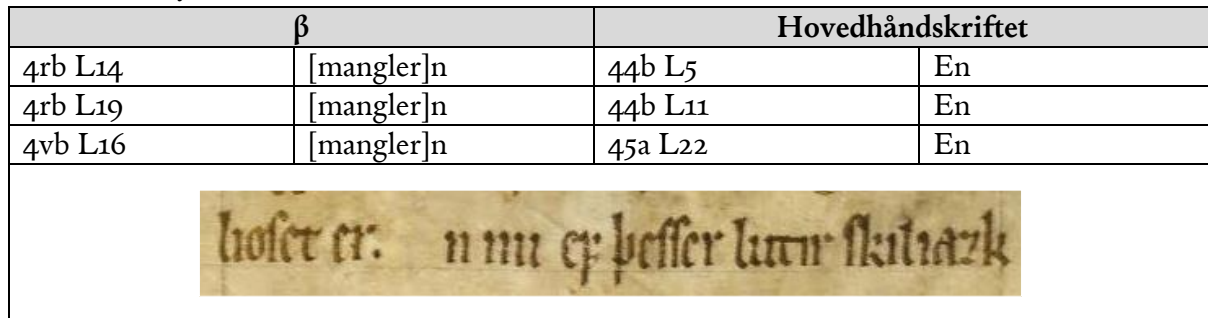 β Hovedhåndskriftet
4rb L14 [mangler]n 44b L5 En
4rb L19 [mangler]n 44b L11 En
4vb L16 [mangler]n 45a L22 En
lioſet er. n nu eꝼ þeſſer lutir ſkiliazk